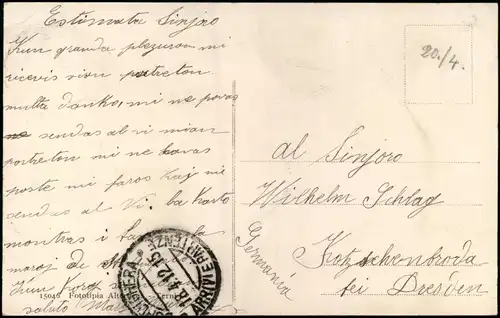 Estimata Sinjoro
Kun granda plezuron mi
ricevis vian portreton
multa danko, mi ne povas
sendas al vi mian
portreton mi ne havas
poste mi faros kaj mi
sendas al Vi, la karto
montras i la
maroj de
Kun
saluto
15049 Fototipia Terni
ARRIVI E PARTENZE
18.4.12.15
20./4.
al Sinjoro
Wilhelm Schlag
Germania
Kötzschenbroda
bei Dresden